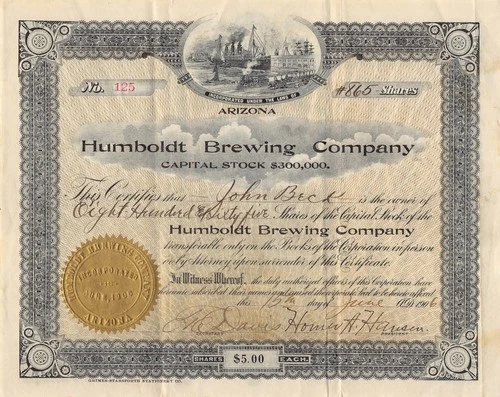 No. 125
#865 Shares
INCORPORATED UNDER THE LAWS OF
ARIZONA
Humboldt Brewing Company
CAPITAL STOCK $300,000.
This Certifies that John Beck is the owner of
Eight Hundred & Sixty five Shares of the Capital Stock of the
Humboldt Brewing Company
transferable only on the Books of the Corporation in person
or by Attorney upon surrender of this Certificate.
In Witness Whereof, the duly authorized officers of this Corporation have
hereunto subscribed their names and caused the corporate Seal to be hereto affixed
this 15th day of June 1906
Davis Homer A. Hansen
SECRETARY PRESIDENT
HUMBOLDT BREWING COMPANY
INCORPORATED
ARIZONA
SHARES $5.00 EACH.
GRIMES-STASSFORTH STATIONERY CO.